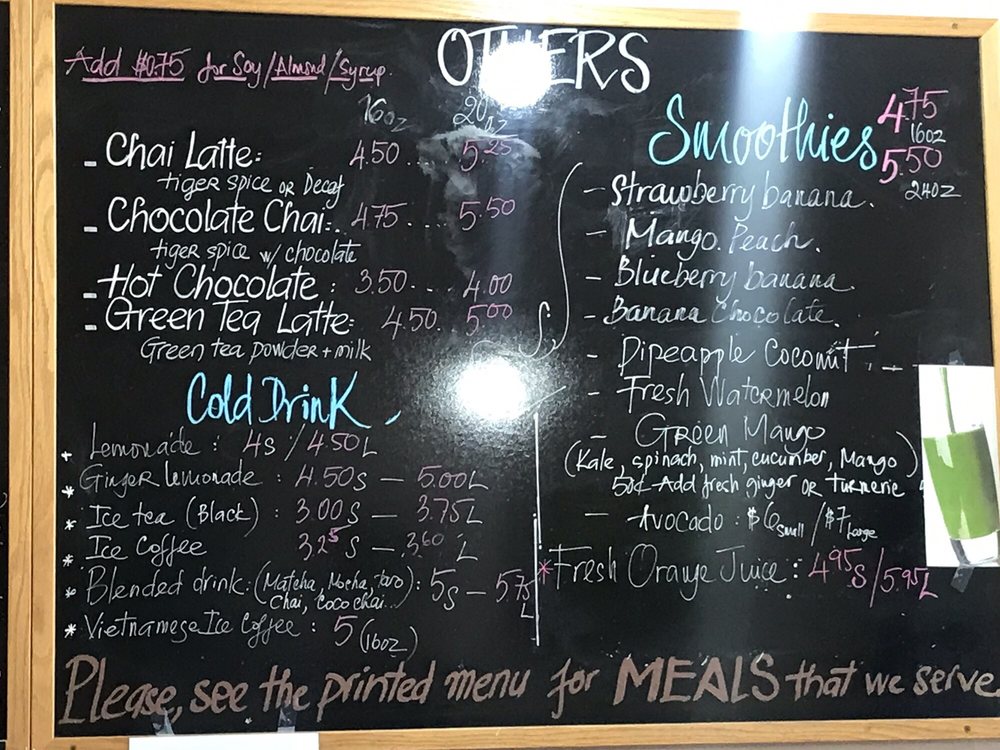 OTHERS
Add $0.75 for Soy/Almond/Syrup.
16oz 20oz
- Chai Latte: 4.50.... 5.25
tiger spice or Decaf
- Chocolate Chai:. 4.75.... 5.50
tiger spice w/ chocolate
- Hot Chocolate : 3.50.... 4.00
- Green Tea Latte: 4.50. 5.00
Green tea powder + milk
Cold Drink
* Lemonade : 4S / 4.50L
* Ginger lemonade : 4.50S — 5.00L
* Ice tea (Black) : 3.00S — 3.75L
* Ice Coffee 3.25 S — 3.60 L
* Blended drink: (Matcha, Mocha, taro) : 5S — 5.75 L
Chai, Coco chai...
* Vietnamese Ice Coffee : 5 (16oz)
Smoothies 4.75 16oz
5.50 24oz
- Strawberry banana.
- Mango. Peach.
- Blueberry banana.
- Banana Chocolate.
- Pipeapple Coconut.
- Fresh Watermelon
- Green Mango
(Kale, spinach, mint, cucumber, Mango)
50¢ Add fresh ginger or turmeric
- Avocado : $6 small / $7 Large
* Fresh Orange Juice : 4.95S / 5.95L
Please, see the printed menu for MEALS that we serve